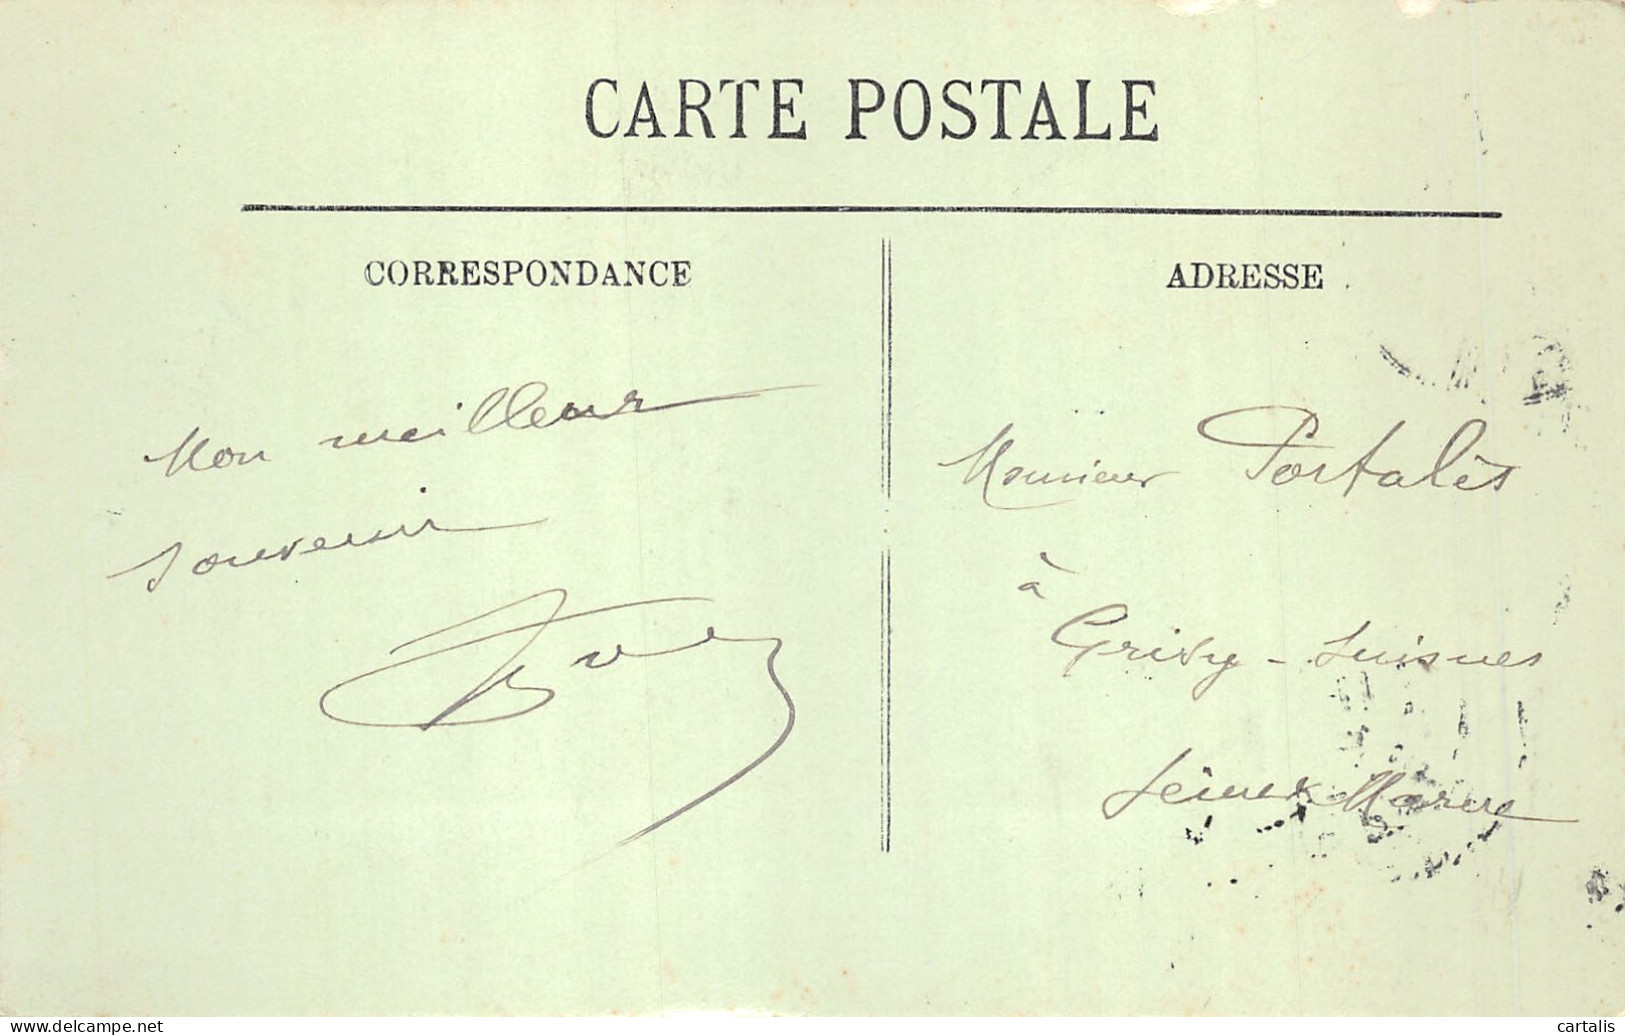 CARTE POSTALE
CORRESPONDANCE
Mon meilleur
souvenir
ADRESSE
Monsieur Portalès
à
Grisy-Suisnes
Seine x Marne
delcampe.net
cartalis